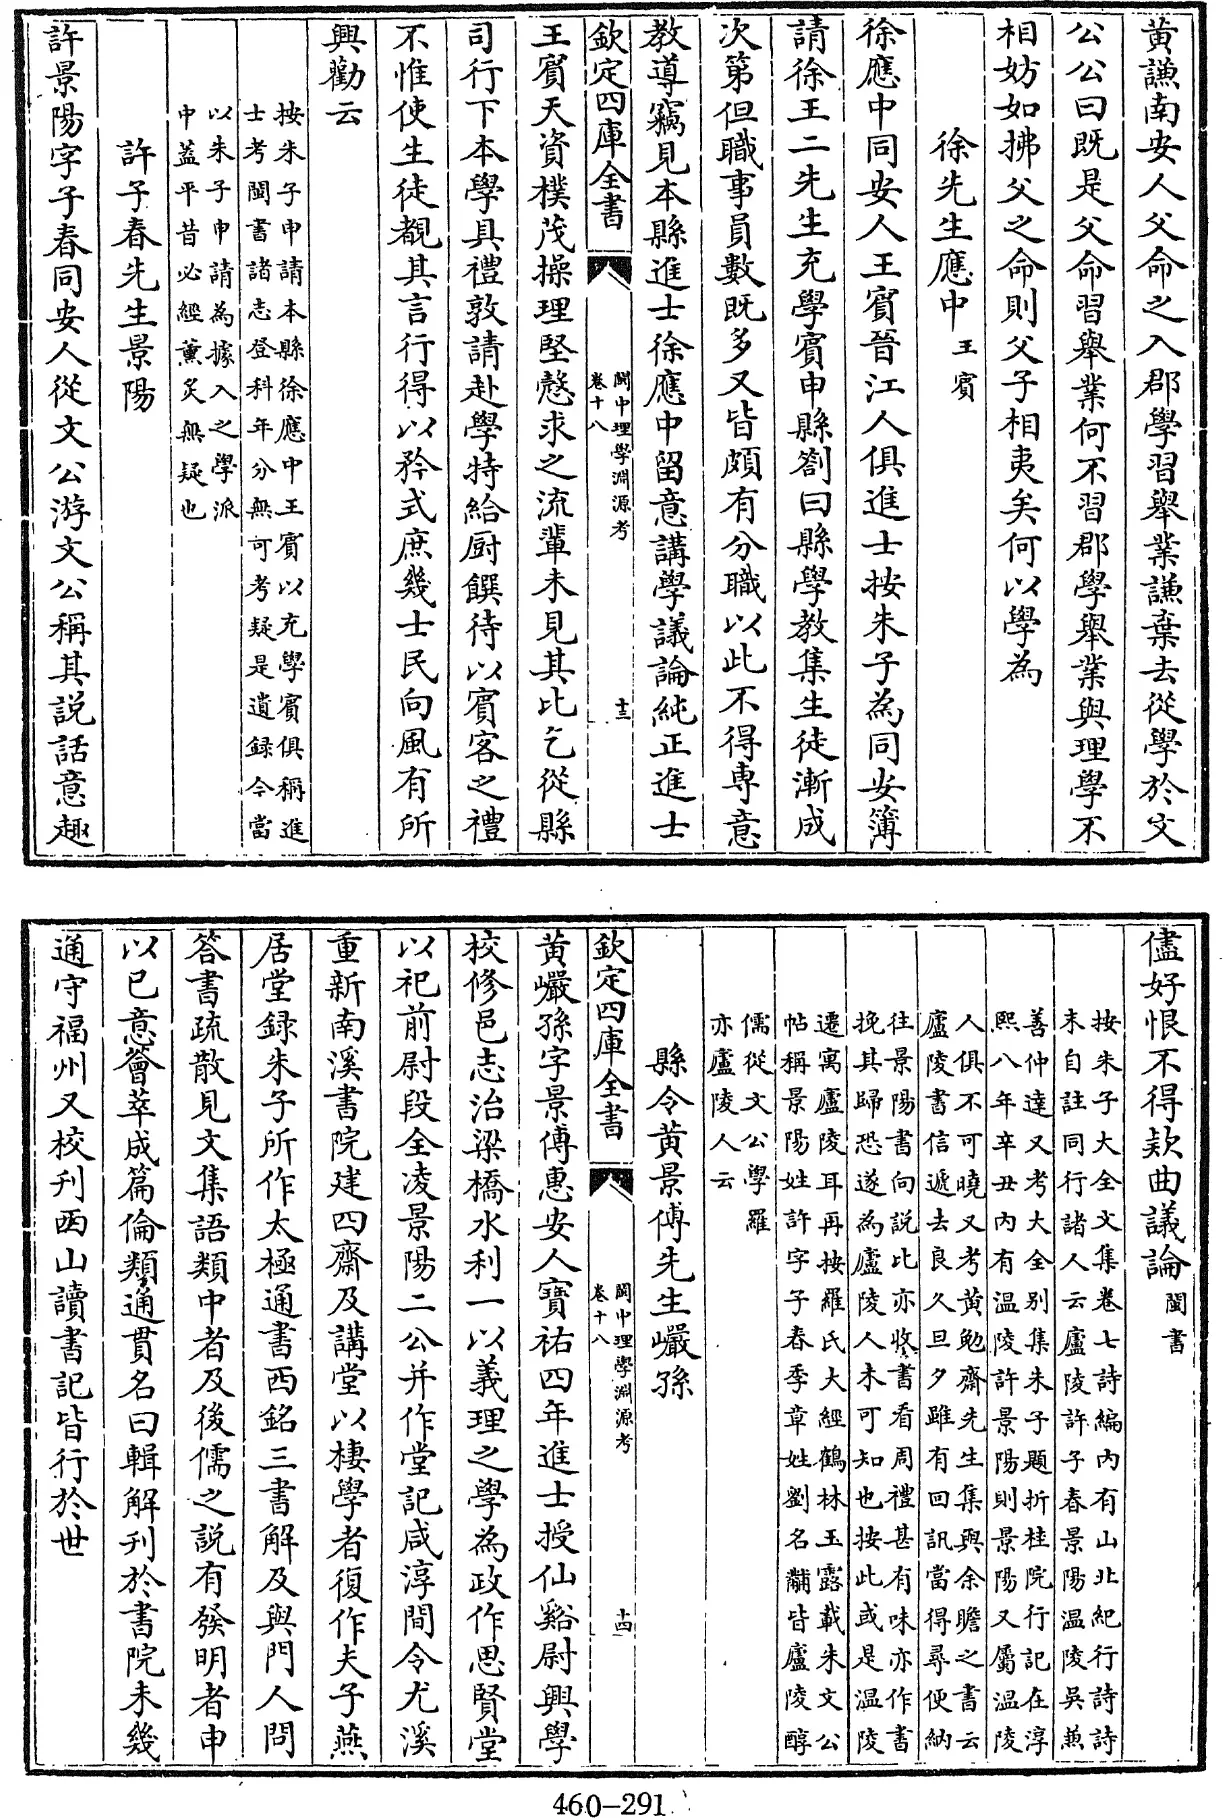 黄謙南安人父命之入郡學習舉業謙棄去從學於文
公公曰既是父命習舉業何不習郡學舉業與理學不
相妨如拂父之命則父子相夷矣何以學為
徐先生應中 王賓
徐應中同安人王賓晉江人俱進士按朱子為同安簿
請徐王二先生充學賓申縣劄曰縣學教集生徒漸成
次第但職事員數既多又皆頗有分職以此不得專意
教導竊見本縣進士徐應中留意講學議論純正進士
欽定四庫全書
閩中理學淵源考
卷十八
十三
王賓天資樸茂操理堅慤求之流輩未見其比乞從縣
司行下本學具禮敦請赴學特給厨饌待以賓客之禮
不惟使生徒覩其言行得以矜式庶幾士民向風有所
興勸云
按朱子申請本縣徐應中王賓以充學賓俱稱進
士考閩書諸志登科年分無可考疑是遺録今當
以朱子申請為據入之學派
中蓋平昔必經薰炙無疑也
許子春先生景陽
許景陽字子春同安人從文公游文公稱其説話意趣
儘好恨不得欵曲議論 閩書
按朱子大全文集卷七詩編内有山北紀行詩詩
末自註同行諸人云廬陵許子春景陽温陵吳兼
善仲達又考大全别集朱子題折桂院行記在淳
熙八年辛丑内有温陵許景陽則景陽又屬温陵
人俱不可曉又考黄勉齋先生集與余瞻之書云
廬陵書信遞去良久旦夕雖有回訊當得尋便納
往景陽書向説比亦收書看周禮甚有味亦作書
挽其歸恐遂為廬陵人未可知也按此或是温陵
遷寓廬陵耳再按羅氏大經鶴林玉露載朱文公
帖稱景陽姓許字子春季章姓劉名黼皆廬陵醇
儒從文公學羅
亦廬陵人云
縣令黄景傅先生巖孫
欽定四庫全書
閩中理學淵源考
卷十八
十四
黄巖孫字景傅惠安人寳祐四年進士授仙谿尉興學
校修邑志治梁橋水利一以義理之學為政作思賢堂
以祀前尉段全凌景陽二公并作堂記咸淳間令尤溪
重新南溪書院建四齋及講堂以棲學者復作夫子燕
居堂録朱子所作太極通書西銘三書解及與門人問
答書疏散見文集語類中者及後儒之説有發明者申
以已意薈萃成篇倫類通貫名曰輯解刊於書院未幾
通守福州又校刊西山讀書記皆行於世
460-291